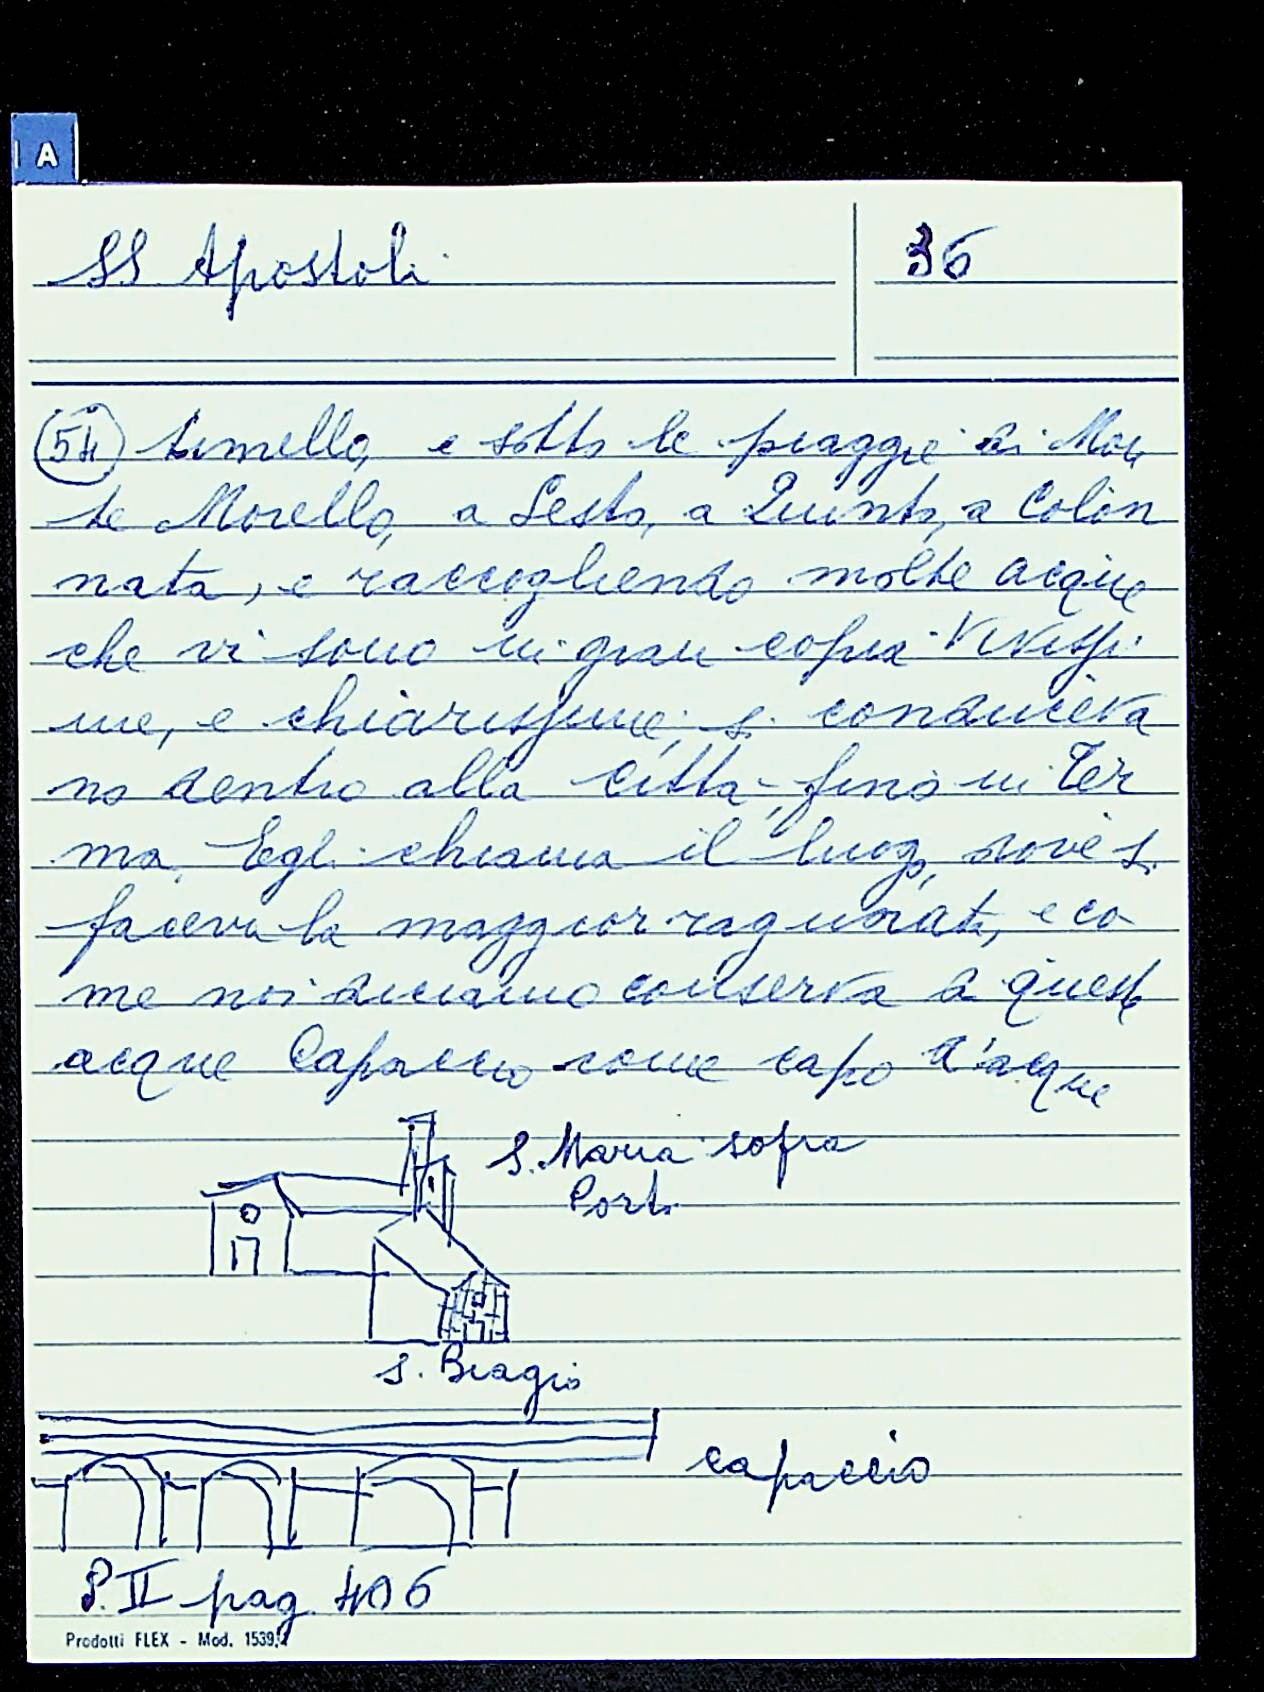 A
SS Apostoli
36
54 timello, e sotto le piaggie di Mon
te Morello, a Sesto, a Quinto, a Colon
nata, e raccogliendo molte acque
che vi sono in gran copia vivissi
me, e chiarissime, si conduceva
no dentro alla città, fino in Ter
ma. Egli chiama il luogo, dove si
faceva la maggior ragunata, e co
me noi diciamo conserva di queste
acque Capaccio come capo d'acque
S. Maria sopra
Porta
S. Biagio
capaccio
P. II pag. 406
Prodotti FLEX - Mod. 1539/